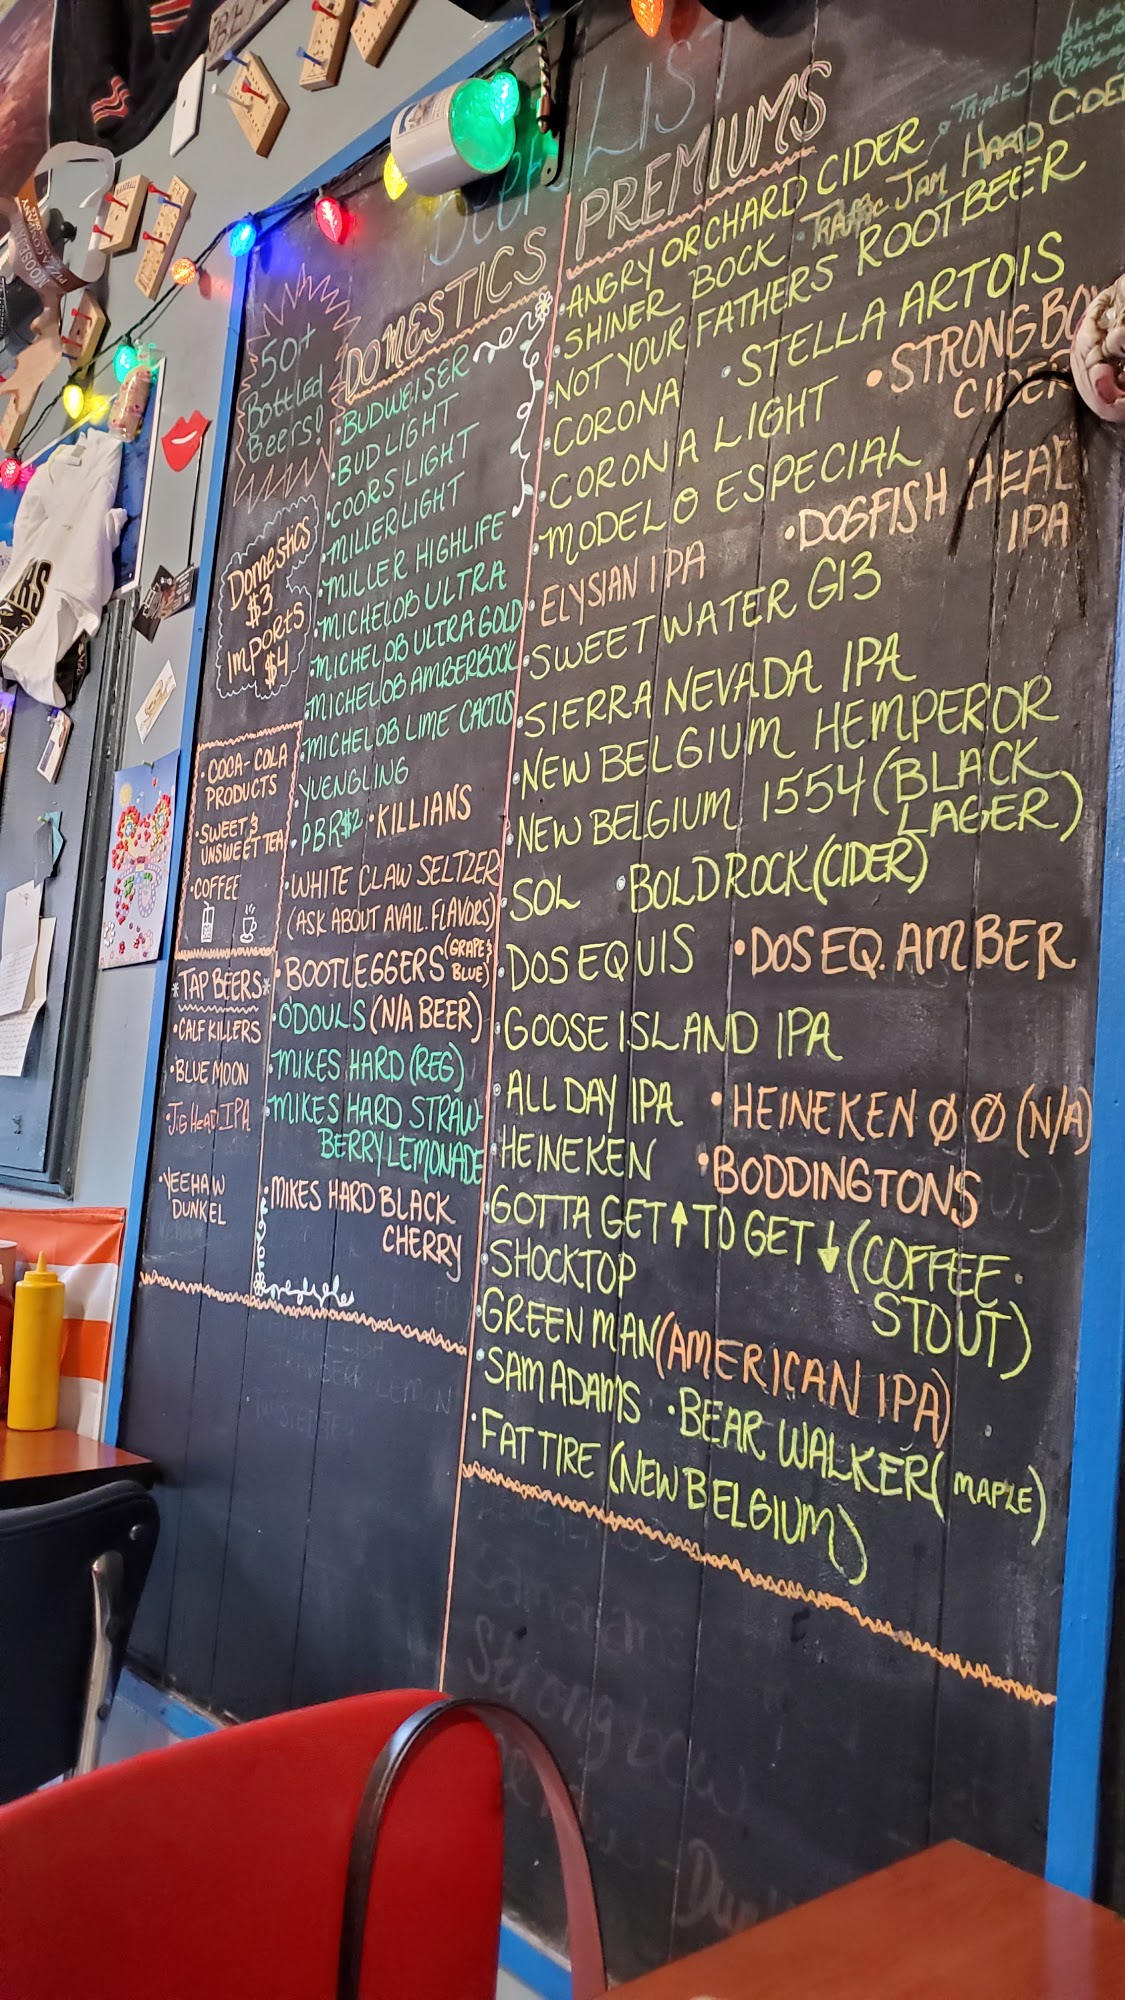 BEER LIST
50+
Bottled
Beers!
Domestics
$3
Imports
$4
• COCA-COLA
PRODUCTS
• SWEET &
UNSWEET TEA
• COFFEE
*TAP BEERS*
• CALF KILLERS
• BLUE MOON
• JIG HEAD IPA
• YEEHAW
DUNKEL
DOMESTICS
• BUDWEISER
• BUD LIGHT
• COORS LIGHT
• MILLER LIGHT
• MILLER HIGHLIFE
• MICHELOB ULTRA
• MICHELOB ULTRA GOLD
• MICHELOB AMBERBOCK
• MICHELOB LIME CACTUS
• YUENGLING
• PBR $2 • KILLIANS
• WHITE CLAW SELTZER
(ASK ABOUT AVAIL. FLAVORS)
• BOOTLEGGERS (GRAPE &
BLUE)
• O'DOULS (N/A BEER)
• MIKES HARD (REG)
• MIKES HARD STRAW-
BERRY LEMONADE
• MIKES HARD BLACK
CHERRY
PREMIUMS
• ANGRY ORCHARD CIDER
• SHINER BOCK • TRAFFIC JAM HARD CIDER
• NOT YOUR FATHERS ROOTBEER
• CORONA • STELLA ARTOIS
• CORONA LIGHT • STRONGBOW
CIDER
• MODELO ESPECIAL
• ELYSIAN IPA • DOGFISH HEAD
IPA
• SWEET WATER G13
• SIERRA NEVADA IPA
• NEW BELGIUM HEMPEROR
• NEW BELGIUM 1554 (BLACK
LAGER)
• SOL • BOLD ROCK (CIDER)
• DOS EQUIS • DOS EQ. AMBER
• GOOSE ISLAND IPA
• ALL DAY IPA • HEINEKEN Ø Ø (N/A)
• HEINEKEN • BODDINGTONS
• GOTTA GET ↑ TO GET ↓ (COFFEE
STOUT)
• SHOCKTOP
• GREEN MAN (AMERICAN IPA)
• SAM ADAMS • BEAR WALKER (MAPLE)
• FAT TIRE (NEW BELGIUM)
Strongbow